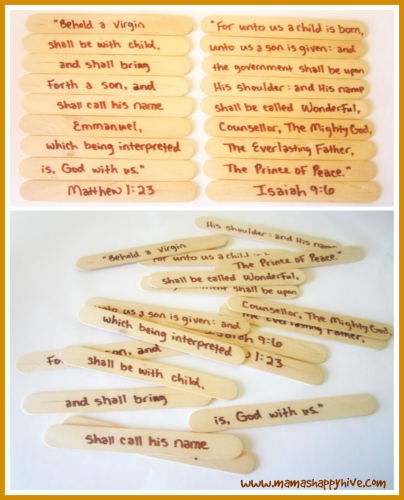 "Behold a virgin
shall be with child,
and shall bring
Forth a son, and
shall call his name
Emmanuel,
which being interpreted
is, God with us."
Matthew 1:23
"For unto us a child is born,
unto us a son is given: and
the government shall be upon
His shoulder: and His name
shall be called Wonderful,
Counsellor, The Mighty God,
The Everlasting Father,
The Prince of Peace."
Isaiah 9:6
His shoulder: and His name
"Behold a virgin
"For unto us a child is b
The Prince of Peace."
shall be called Wonderful,
shall be upon
unto us a son is given: and
Counsellor, The Mighty God,
The Everlasting Father,
which being interpreted
Isaiah 9:6
1:23
Fo son, and
shall be with child,
and shall bring
is, God with us."
shall call his name
www.mamashappyhive.com